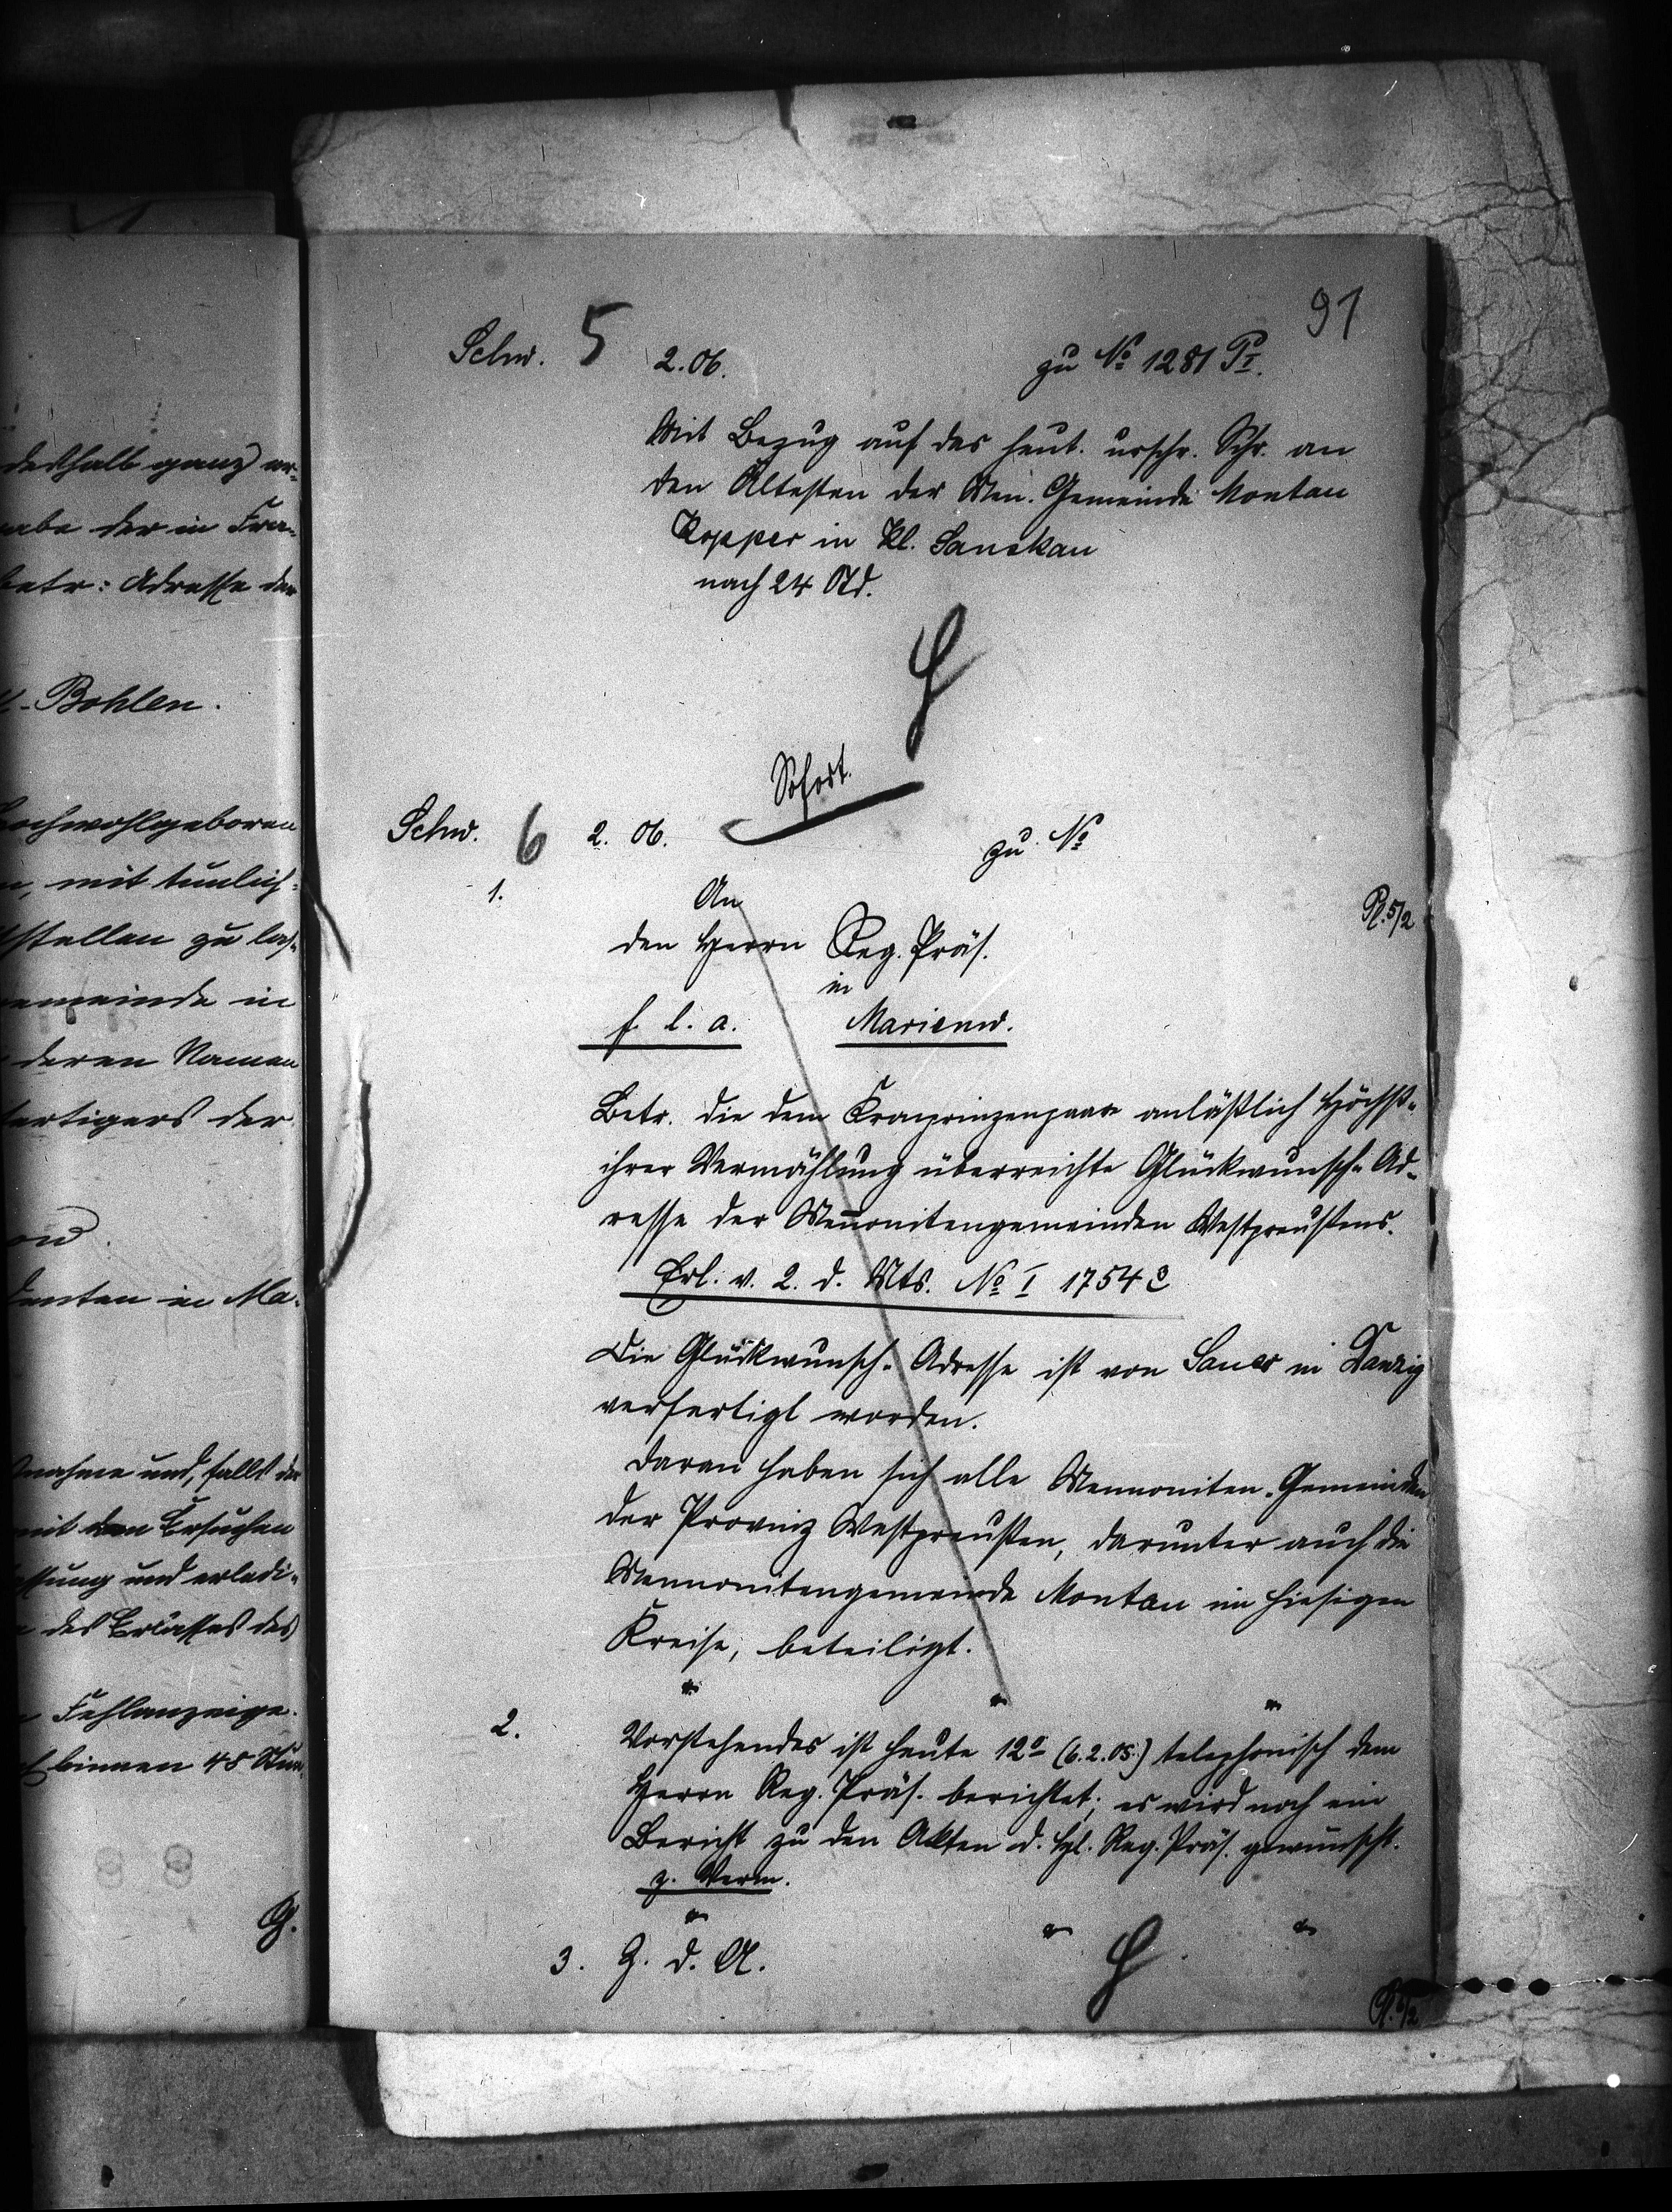 91
Schw. 5 2. 06. zu No 1281 PI.
Mit Bezug auf das heut. urschr. Schr. an
den Ältesten der Men. Gemeinde Montau
Kopper in Kl. Sanskau
nach 24 Std.
Sofort.
Schw. 6 2. 06. zu No
1. An
den Herrn Reg. Präs.
in
f. l. a. Marienw.
Pl. 5/2
Betr. die dem Kronprinzenpaare anläßlich Höchst-
ihrer Vermählung überreichte Glückwunsch-Ad-
resse der Mennonitengemeinden Westpreußens.
Erl. v. 2. d. Mts. No I 1754
Die Glückwunsch-Adresse ist von Sauer in Danzig
verfertigt worden.
Daran haben sich alle Mennoniten-Gemeinden
der Provinz Westpreußen, darunter auch die
Mennonitengemeinde Montau im hiesigen
Kreise, beteiligt.
2. Vorstehendes ist heute 12 (6. 2. 05.) telephonisch dem
Herrn Reg. Präs. berichtet; es wird noch ein
Bericht zu den Akten d. Hl. Reg. Präs. gewünscht.
z. Verm.
3. Z. d. A.
deshalb ganz er-
gabe der in Fra-
betr: Adresse der
Bohlen.
Hochwohlgeboren
mit tunlich-
stellen zu las-
gemeinde in
deren Namen
fertigers der
denten in Ma-
nahme und, falls der
mit dem Ersuchen
ssung und erledi-
des Erlasses des
Fehlanzeige.
binnen 48 Stun-
G.